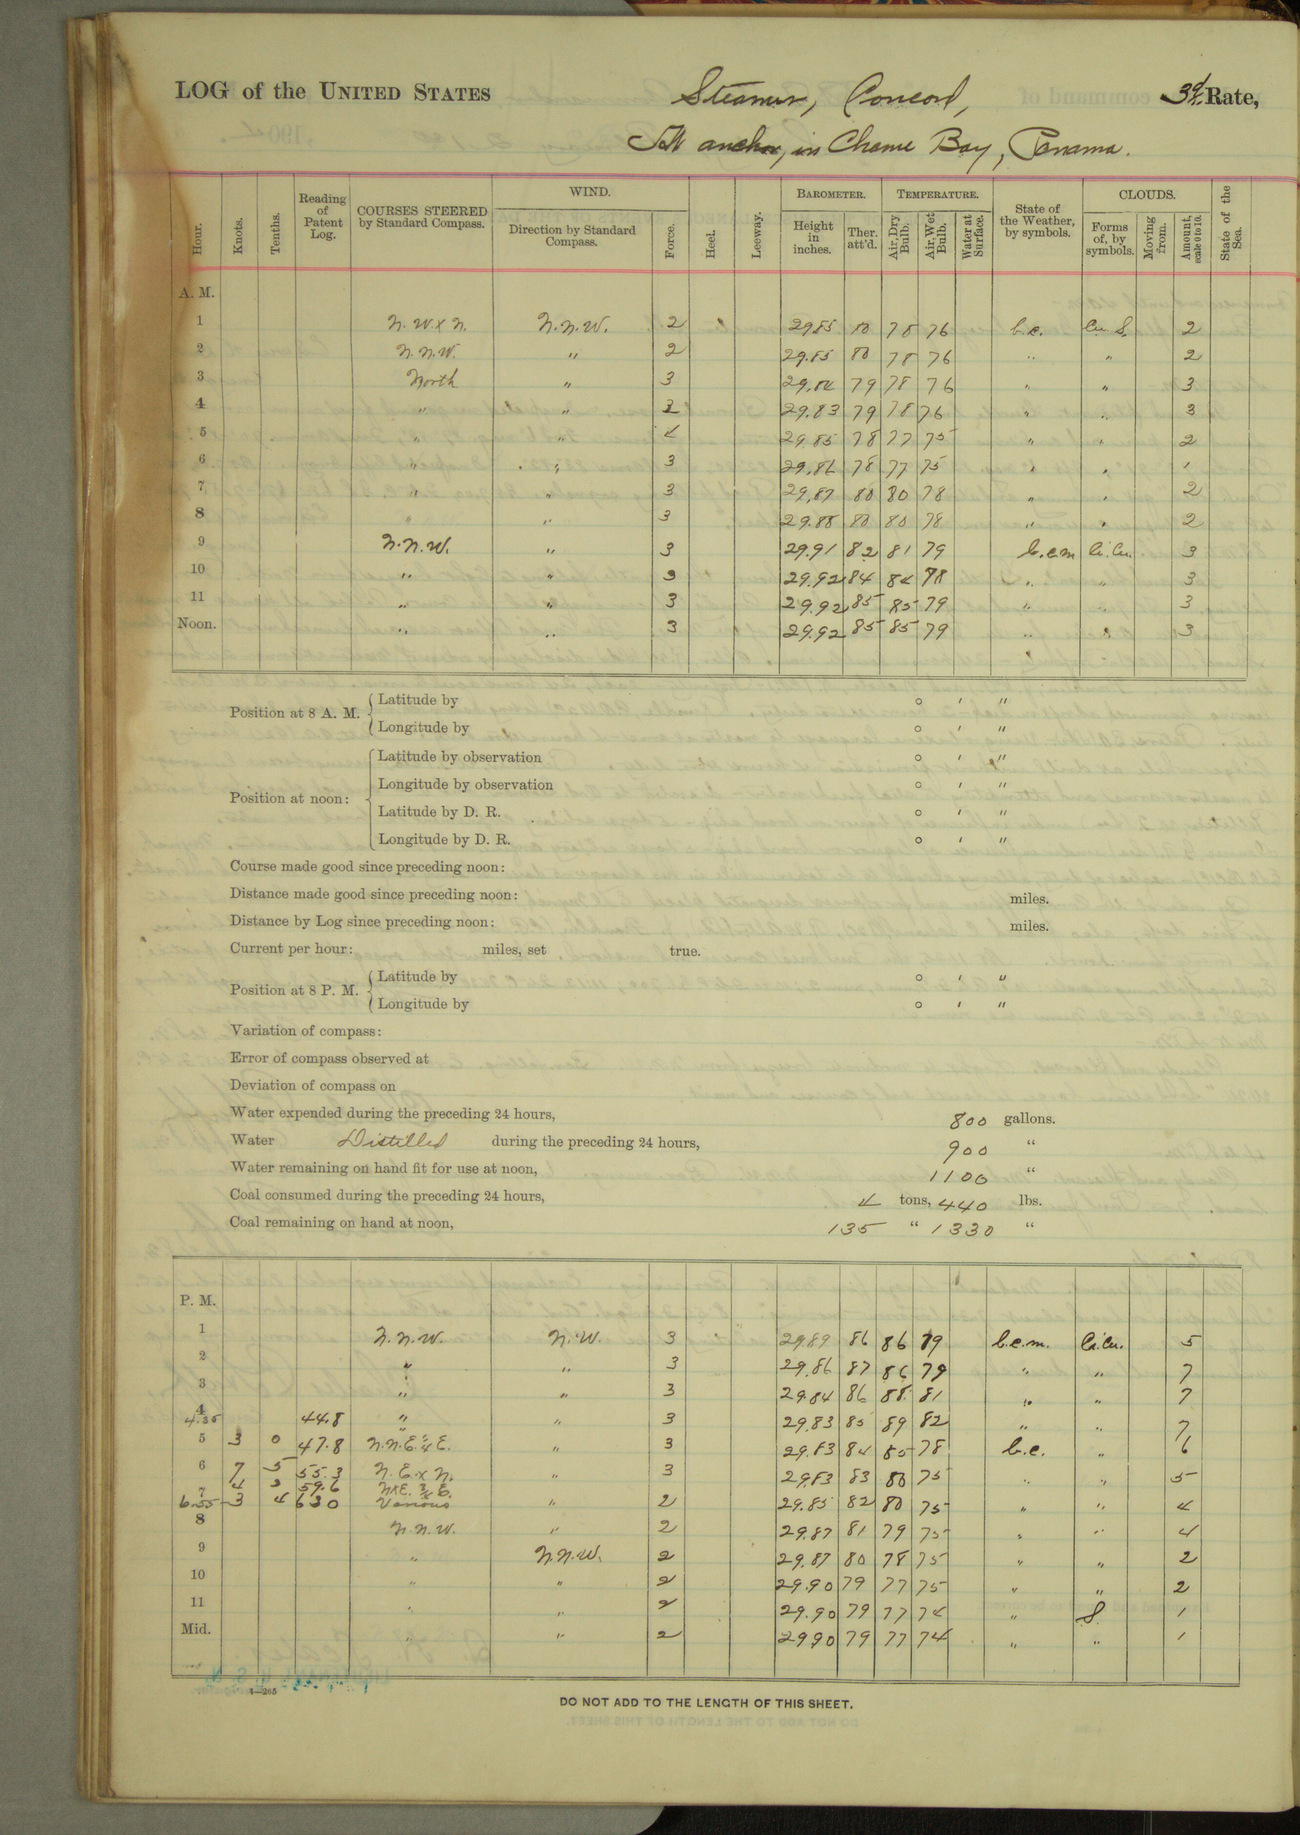 LOG of the UNITED STATES Steamer, Concord, 3d Rate,
At anchor, in Chame Bay, Panama.
Hour. Knots. Tenths. Reading of Patent Log. COURSES STEERED by Standard Compass. WIND. Direction by Standard Compass. Force. Heel. Leeway. BAROMETER. Height in inches. Ther. att'd. TEMPERATURE. Air, Dry Bulb. Air, Wet Bulb. Water at Surface. State of the Weather, by symbols. CLOUDS. Forms of, by symbols. Moving from. Amount, scale 0 to 10. State of the Sea.
A. M.
1 N.W.xN. N.N.W. 2 29.85 80 78 76 b.c. Cu.S. 2
2 N.N.W. " 2 29.85 80 78 76 " " 2
3 North " 3 29.84 79 78 76 " " 3
4 " " 2 29.83 79 78 76 " " 3
5 " " 4 29.85 78 77 75 " " 2
6 " " 3 29.86 78 77 75 " " 1
7 " " 3 29.87 80 80 78 " " 2
8 " " 3 29.88 80 80 78 " " 2
9 N.N.W. " 3 29.91 82 81 79 b.c.m Ci.Cu. 3
10 " " 3 29.92 84 84 78 " " 3
11 " " 3 29.92 85 85 79 " " 3
Noon. " " 3 29.92 85 85 79 " " 3
Position at 8 A. M. Latitude by ° ' "
Longitude by ° ' "
Position at noon: Latitude by observation ° ' "
Longitude by observation ° ' "
Latitude by D. R. ° ' "
Longitude by D. R. ° ' "
Course made good since preceding noon:
Distance made good since preceding noon: miles.
Distance by Log since preceding noon: miles.
Current per hour: miles, set true.
Position at 8 P. M. Latitude by ° ' "
Longitude by ° ' "
Variation of compass:
Error of compass observed at
Deviation of compass on
Water expended during the preceding 24 hours, 800 gallons.
Water Distilled during the preceding 24 hours, 900 "
Water remaining on hand fit for use at noon, 1100 "
Coal consumed during the preceding 24 hours, 4 tons, 440 lbs.
Coal remaining on hand at noon, 135 " 1330 "
P. M.
1 N.N.W. N.W. 3 29.89 86 86 79 b.c.m. Ci.Cu. 5
2 " " 3 29.86 87 86 79 " " 7
3 " " 3 29.84 86 88 81 " " 7
4 4.35 44.8 " " 3 29.83 85 89 82 " " 7
5 3 0 47.8 N.N.E.¼E. " 3 29.83 84 85 78 b.c. " 6
6 7 5 55.3 N.E.xN. " 3 29.83 83 80 75 " " 5
7 4 3 59.6 NxE.¾E.
6.55 3 4 63.0 Various " 2 29.85 82 80 75 " " 4
8 N.N.W. " 2 29.87 81 79 75 " " 4
9 " N.N.W. 2 29.87 80 78 75 " " 2
10 " " 2 29.90 79 77 75 " " 2
11 " " 2 29.90 79 77 74 " S. 1
Mid. " " 2 29.90 79 77 74 " " 1
1—265
DO NOT ADD TO THE LENGTH OF THIS SHEET.